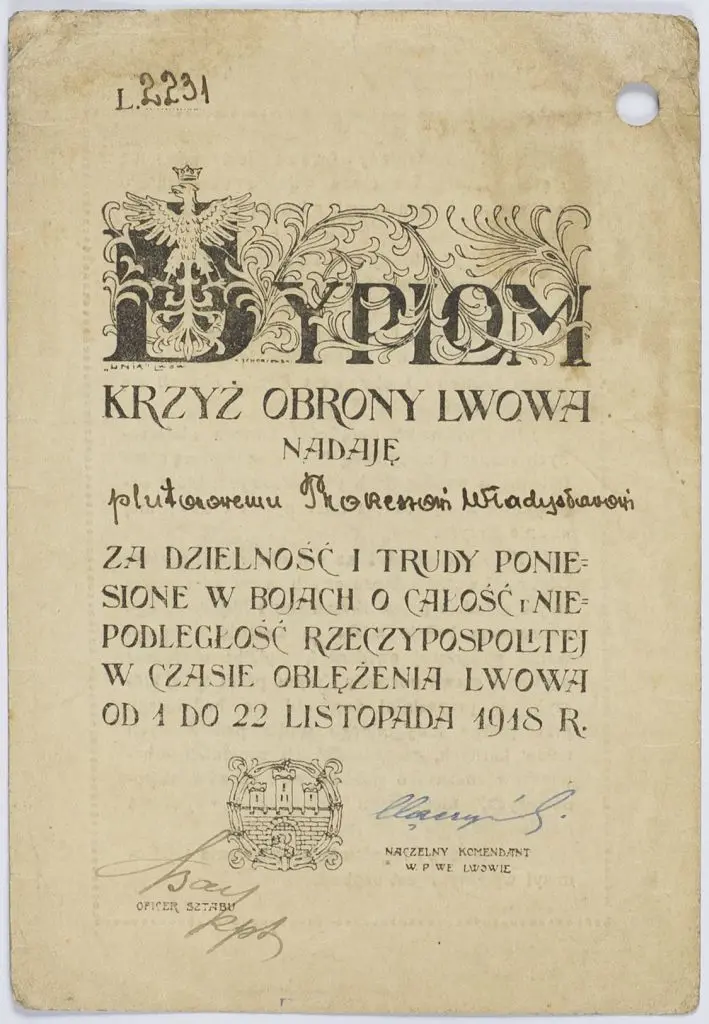 L. 2231
DYPLOM
"UNIA" LWÓW
KRZYŻ OBRONY LWOWA
NADAJĘ
plutonowemu Prokeszowi Władysławowi
ZA DZIELNOŚĆ I TRUDY PONIE=
SIONE W BOJACH O CAŁOŚĆ I NIE=
PODLEGŁOŚĆ RZECZYPOSPOLITEJ
W CZASIE OBLĘŻENIA LWOWA
OD 1 DO 22 LISTOPADA 1918 R.
NACZELNY KOMENDANT
W. P WE LWOWIE
OFICER SZTABU
kpt